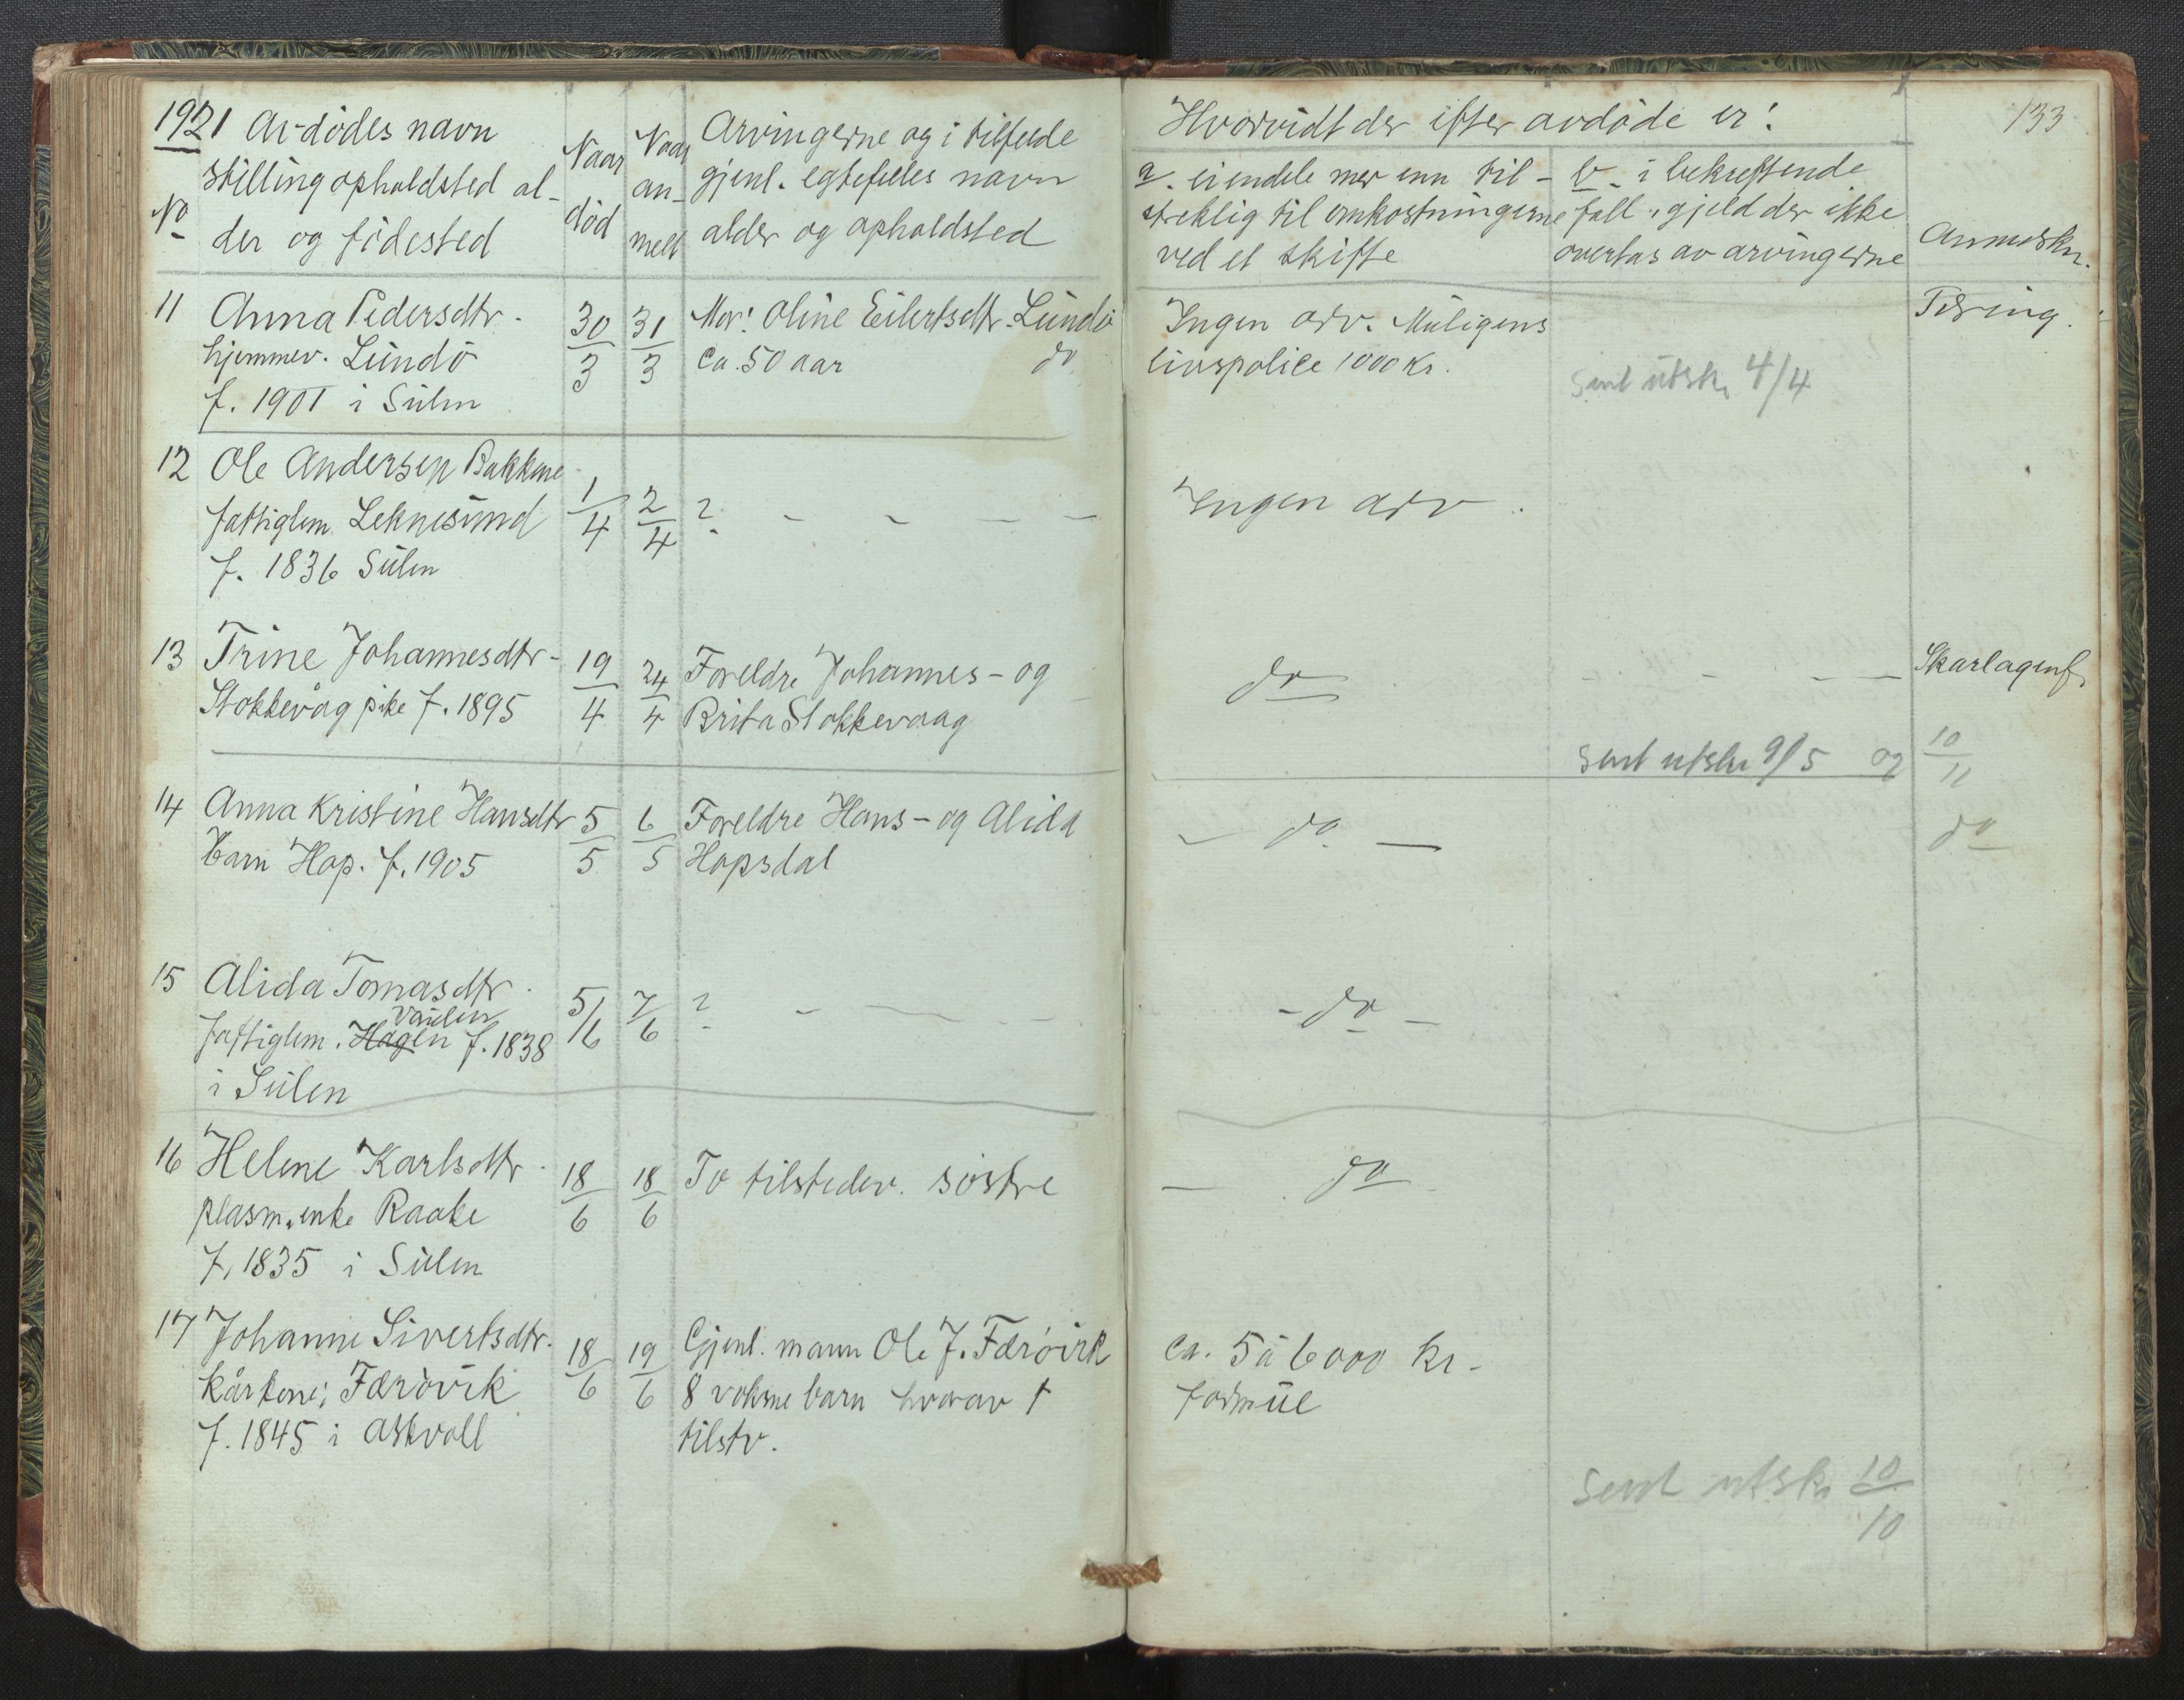 1921 Avdödes navn
stilling opholdsted al-
der og födested
No
Naar
död
Naar
an-
melt
Arvingerne og i tilfelde
gjenl. egtefeles navn
alder og opholdsted
Hvorvidt der efter avdöde er:
133
a. eiendele mer enn til-
strekelig til omkostningerne
ved et skifte
b. i bekreftende
fall, gjeld der ikke
overtas av arvingerne
Anmerkn.
11 Anna Pedersdtr.
hjemmev. Lundö
f. 1901 i Sulen
30/3
31/3
Mor: Oline Eilertsdtr. Lundö
ca. 50 aar do
Ingen arv. Muligens
livspolice 1000 kr.
Sent utskr 4/4
Tæring.
12 Ole Andersen Bakkene
fattiglem Leknesund
f. 1836 Sulen
1/4
2/4
? - - - -
Ingen arv.
13 Trine Johannesdtr-
Stokkevåg pike f. 1895
19/4
24/4
Foreldre Johannes- og
Brita Stokkevaag
do - - - -
Skarlagenf.
Sent utskr 9/5 og 10/11
14 Anna Kristine Hansdtr
Barn Hop. f. 1905
5/5
6/5
Foreldre Hans- og Alida
Hopsdal
- do -
do
15 Alida Tomasdtr.
Vaulen
fattiglem. Hagen f. 1838
i Sulen
5/6
7/6
? - - - -
- do -
16 Helene Karlsdtr.
plasm.enke Raake
f. 1835 i Sulen
18/6
18/6
To tilstedev. söstre
- do -
17 Johanne Sivertsdtr.
kårkone, Færövik
f. 1845 i Askvoll
18/6
19/6
Gjenl. mann Ole J. Færövik
8 voksne barn hvorav 1
tilstv.
ca. 5 à 6000 kr.
formue
Sent utskr 10/10